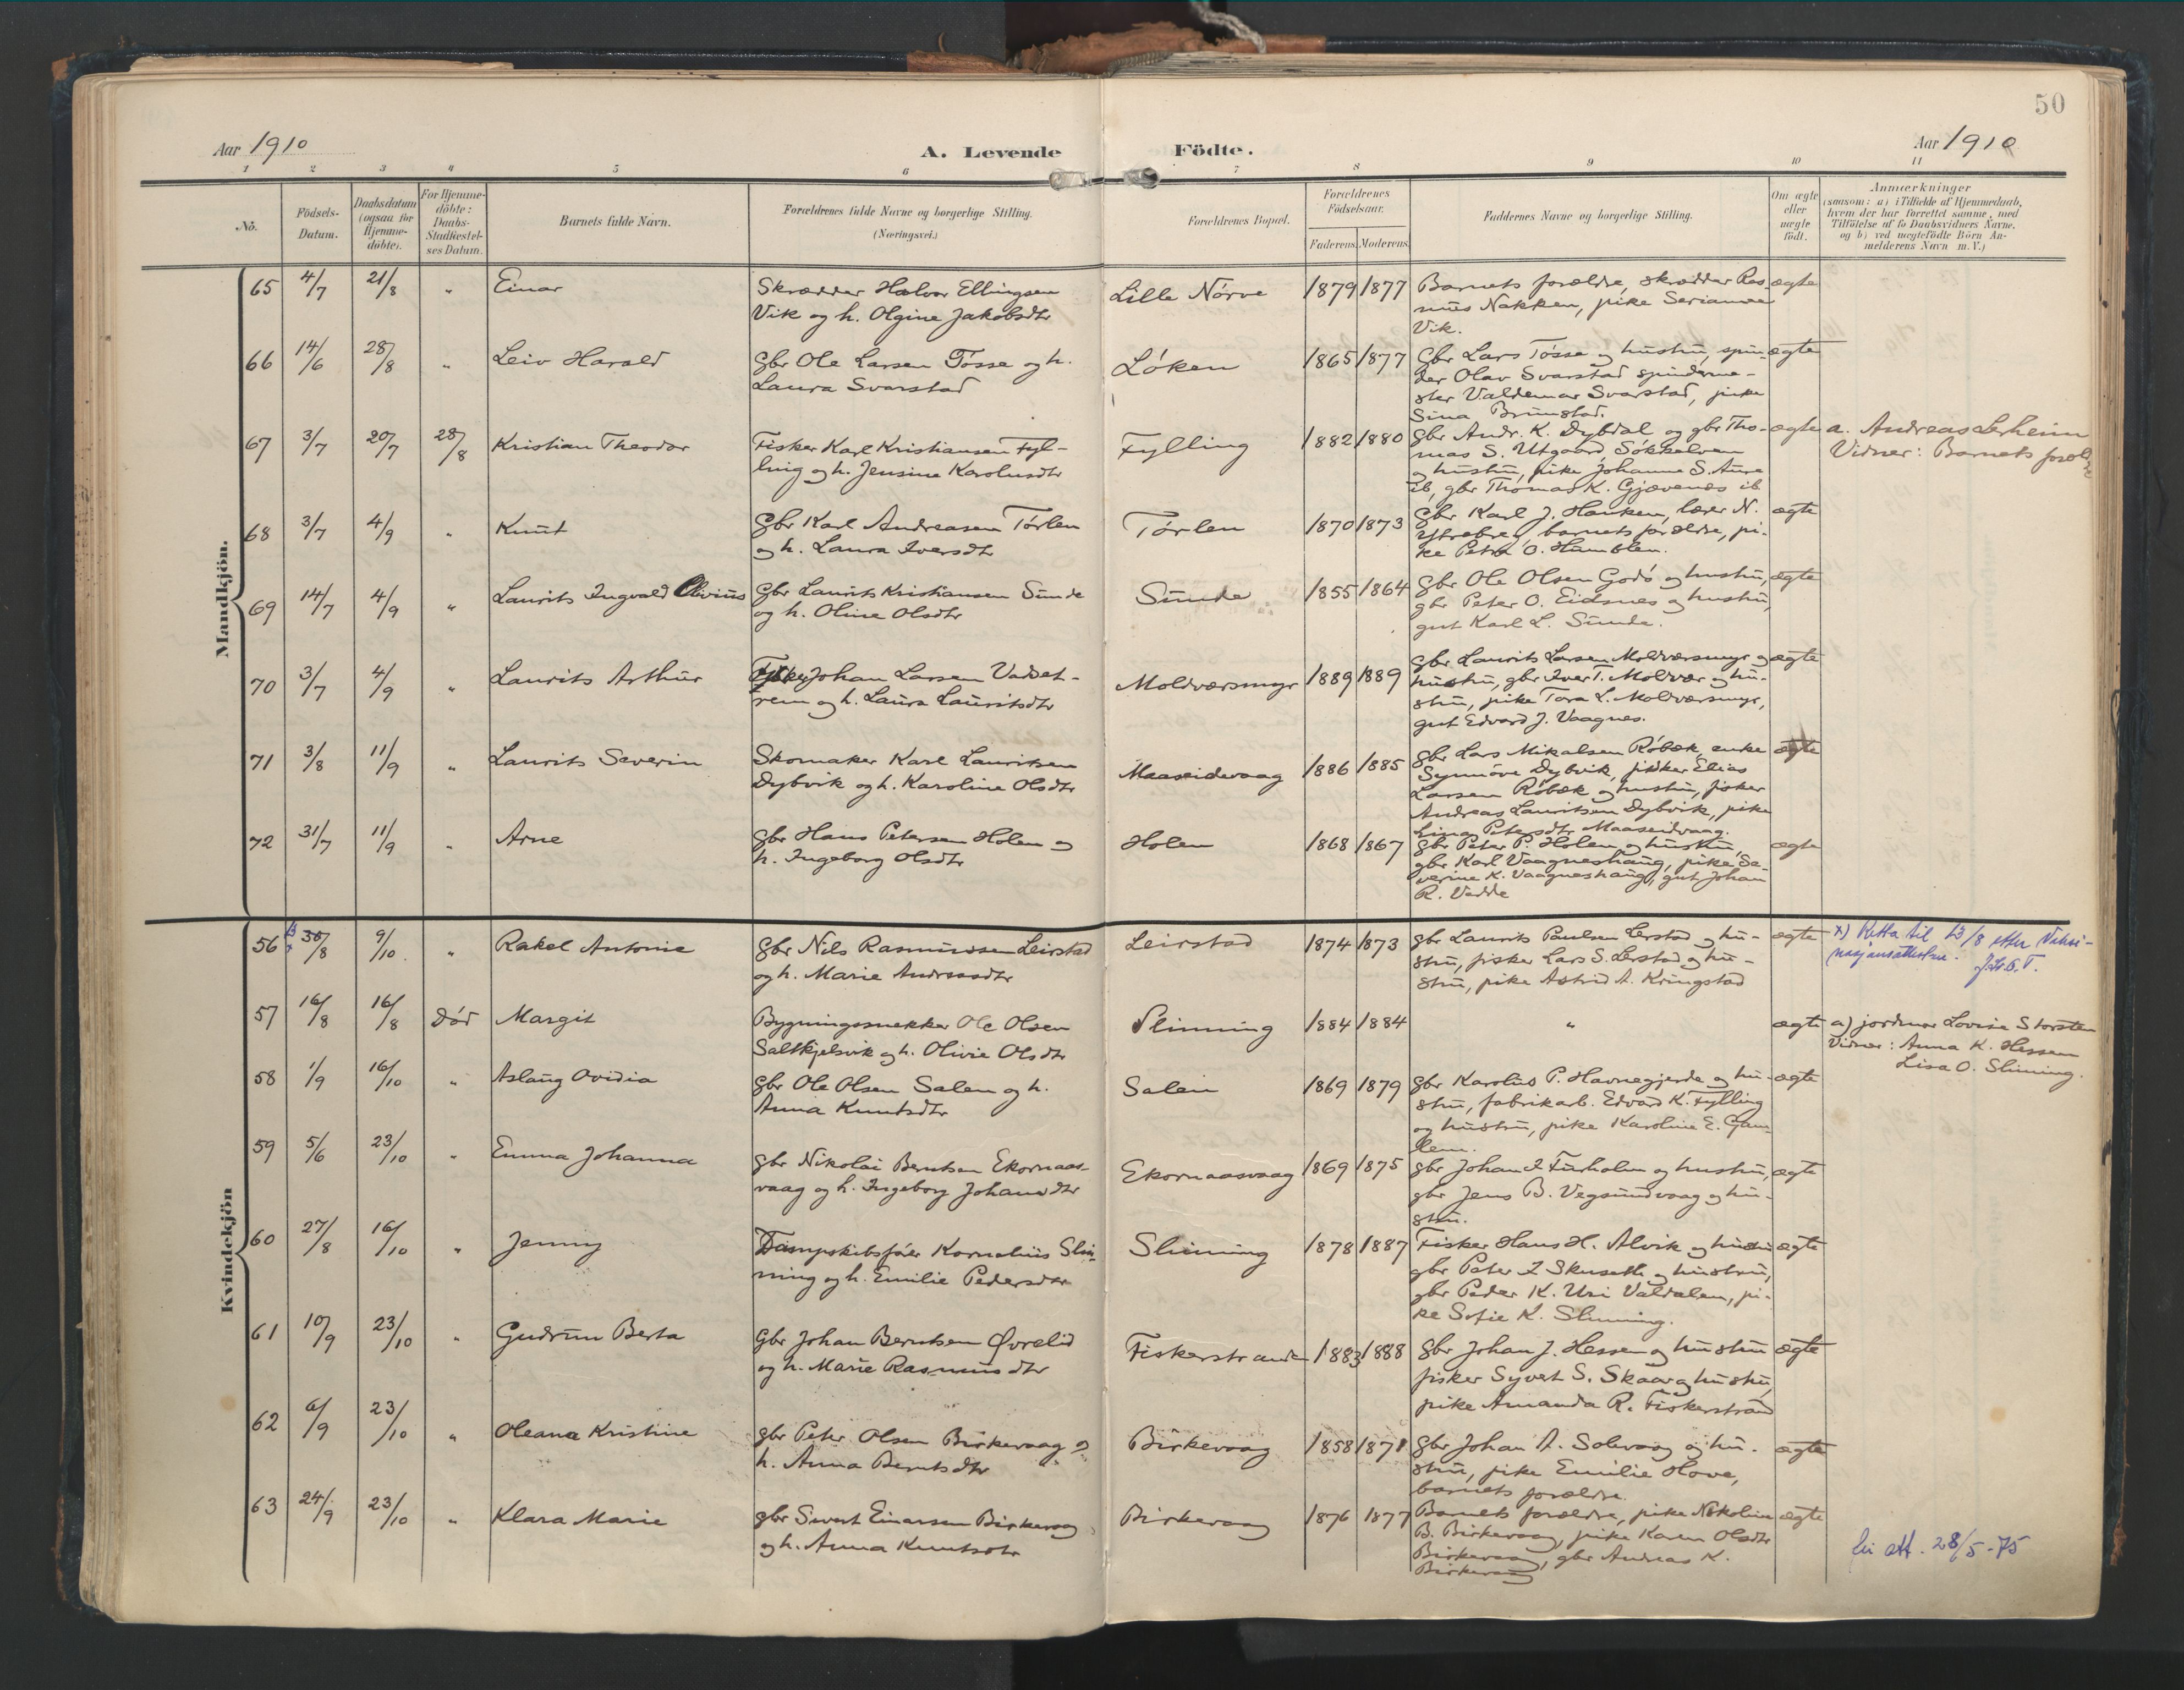 50
Aar 1910
A. Levende Födte.
Aar 1910
1 2 3 4 5 6 7 8 9 10 11
No.
Födsels-Datum.
Daabsdatum (ogsaa for Hjemmedöbte).
For Hjemmedöbte: Daabs-Stadfæstelses Datum.
Barnets fulde Navn.
Forældrenes fulde Navne og borgerlige Stilling.
(Næringsvei.)
Forældrenes Bopæl.
Forældrenes Födselsaar.
Faderens. Moderens.
Faddernes Navne og borgerlige Stilling.
Om ægte eller uægte födt.
Anmærkninger
(saasom: a) i Tilfælde af Hjemmedaab,
hvem der har forrettet samme, med
Tilföielse af to Daabsvidners Navne,
og b) ved uægtefödte Börn Anmelderens Navn m. V.)
Mandkjön.
65 4/7 21/8 " Einar
Skrædder Halvor Ellingsen
Vik og h. Olgine Jakobsdtr
Lille Nörve 1879 1877
Barnets forældre, skrædder Ras-
mus Nakken, pike Serianna
Vik.
ægte
66 14/6 28/8 " Leiv Harald
Gbr Ole Larsen Tösse og h.
Laura Svarstad
Löken 1865 1877
Gbr Lars Tösse og hustru, spin-
der Olav Svarstad spinderme-
ster Valdemar Svarstad, pike
Sina Brunstad.
ægte
67 3/7 20/7 28/8 Kristian Theodor
Fisker Karl Kristiansen Fyl-
ling og h. Jensine Karolusdtr
Fylling 1882 1880
gbr Andr. K. Dybdal og gbr Tho-
mas S. Utgaard, Sökkelven
og hustru, pike Johanne S. Aure
ib, gbr Thomas K. Gjævenes ib
ægte
a. Andreas Lerheim
Vidner: Barnets foreld
68 3/7 4/9 " Knut
Gbr Karl Andreasen Törlen
og h. Laura Iversdtr
Törlen 1870 1873
Gbr Karl J. Hauken, lærer N.
Ytrebrev, barnets forældre, pi-
ke Petra O. Humblen.
ægte
69 14/7 4/9 " Laurits Ingvald Olivius
Gbr Laurits Kristiansen Sunde
og h. Oline Olsdtr
Sunde 1855 1864
Gbr Ole Olsen Godö og hustru,
gbr Peter O. Eidsnes og hustru,
gut Karl L. Sunde.
ægte
70 3/7 4/9 " Laurits Arthur
Fisker Johan Larsen Vaddet-
rem og h. Laura Lauritsdtr
Moldværsmyr 1889 1889
Gbr Laurits Larsen Moldværsmyr og
hustru, gbr Iver T. Moldvær og hu-
stru, pike Tora L. Moldværsmyr,
gut Edvard J. Vaagnes.
ægte
71 3/8 11/9 " Laurits Severin
Skomaker Karl Lauritsen
Dybvik og h. Karoline Olsdtr
Maaseidevaag 1886 1885
Gbr Lars Mikalsen Röbæk, enke
Synnöve Dybvik, fisker Elias
Larsen Röbæk og hustru, fisker
Andreas Lauritsen Dybvik, pike
Lina Petersdtr Maaseidvaag.
ægte
72 31/7 11/9 " Arne
Gbr Hans Petersen Holen og
h. Ingeborg Olsdtr
Holen 1868 1867
Gbr Peter P. Holen og hustru,
gbr Karl Vaagneshaug, pike Se-
verine K. Vaagneshaug, gut Johan
R. Vadde
ægte
Kvindekjön
56 30/8 9/10 " Rakel Antonie
Gbr Nils Rasmussen Leirstad
og h. Marie Andreasdtr
Leirstad 1874 1873
gbr Laurits Paulsen Lerstad og hu-
stru, fisker Lars S. Lerstad og hu-
stru, pike Astrid A. Kringstad
ægte
x) Retta til 13/8 etter Vaksi-
nasjonsattesten.
57 16/8 16/8 död Margit
Bygningssnekker Ole Olsen
Saltkjelsvik og h. Olivie Olsdtr
Slinning 1884 1884
"
ægte
a) jordmor Lovise Storsten
Vidner: Anna K. Hessen
Lisa O. Slinning.
58 1/9 16/10 " Aslaug Ovidia
Gbr Ole Olsen Salen og h.
Anna Knutsdtr
Salen 1869 1879
Gbr Karolius P. Havnegjerde og hu-
stru, fabrikarb. Edvard K. Fylling
og hustru, pike Karoline E. Gam-
lem.
ægte
59 5/6 23/10 " Emma Johanna
Gbr Nikolai Berntsen Ekornaas-
vaag og h. Ingeborg Johansdtr
Ekornaasvaag 1869 1875
gbr Johan I Furholm og hustru,
gbr Jens B. Vegsundvaag og hu-
stru.
ægte
60 27/8 16/10 " Jenny
Dampskibsförer Kornelius Slin-
ning og h. Emilie Pedersdtr
Slinning 1878 1887
Fisker Hans H. Alvik og hustru
gbr Peter I Skuseth og hustru,
gbr Peder K. Uri Valdalen, pi-
ke Sofie K. Slinning.
ægte
61 10/9 23/10 " Gudrun Berta
Gbr Johan Berntsen Øvrelid
og h. Marie Rasmusdtr
Fiskerstranden 1883 1888
Gbr Johan J. Hessen og hustru
fisker Syvert S. Skaar og hustru,
pike Amanda R. Fiskerstrand
ægte
62 6/9 23/10 " Oleana Kristine
gbr Peter Olsen Birkevaag og
h. Anna Berntsdtr
Birkevaag 1858 1871
Gbr Johan A. Solevaag og hu-
stru, pike Emilie Hove,
barnets forældre.
ægte
63 24/9 23/10 " Klara Marie
gbr Sivert Einarsen Birkevaag
og h. Anna Knutsdtr
Birkevaag 1876 1877
Barnets forældre, pike Nikoline
B. Birkevaag, pike Karen Olsdtr
Birkevaag, gbr Andreas K.
Birkevaag
ægte
att. 28/5-75